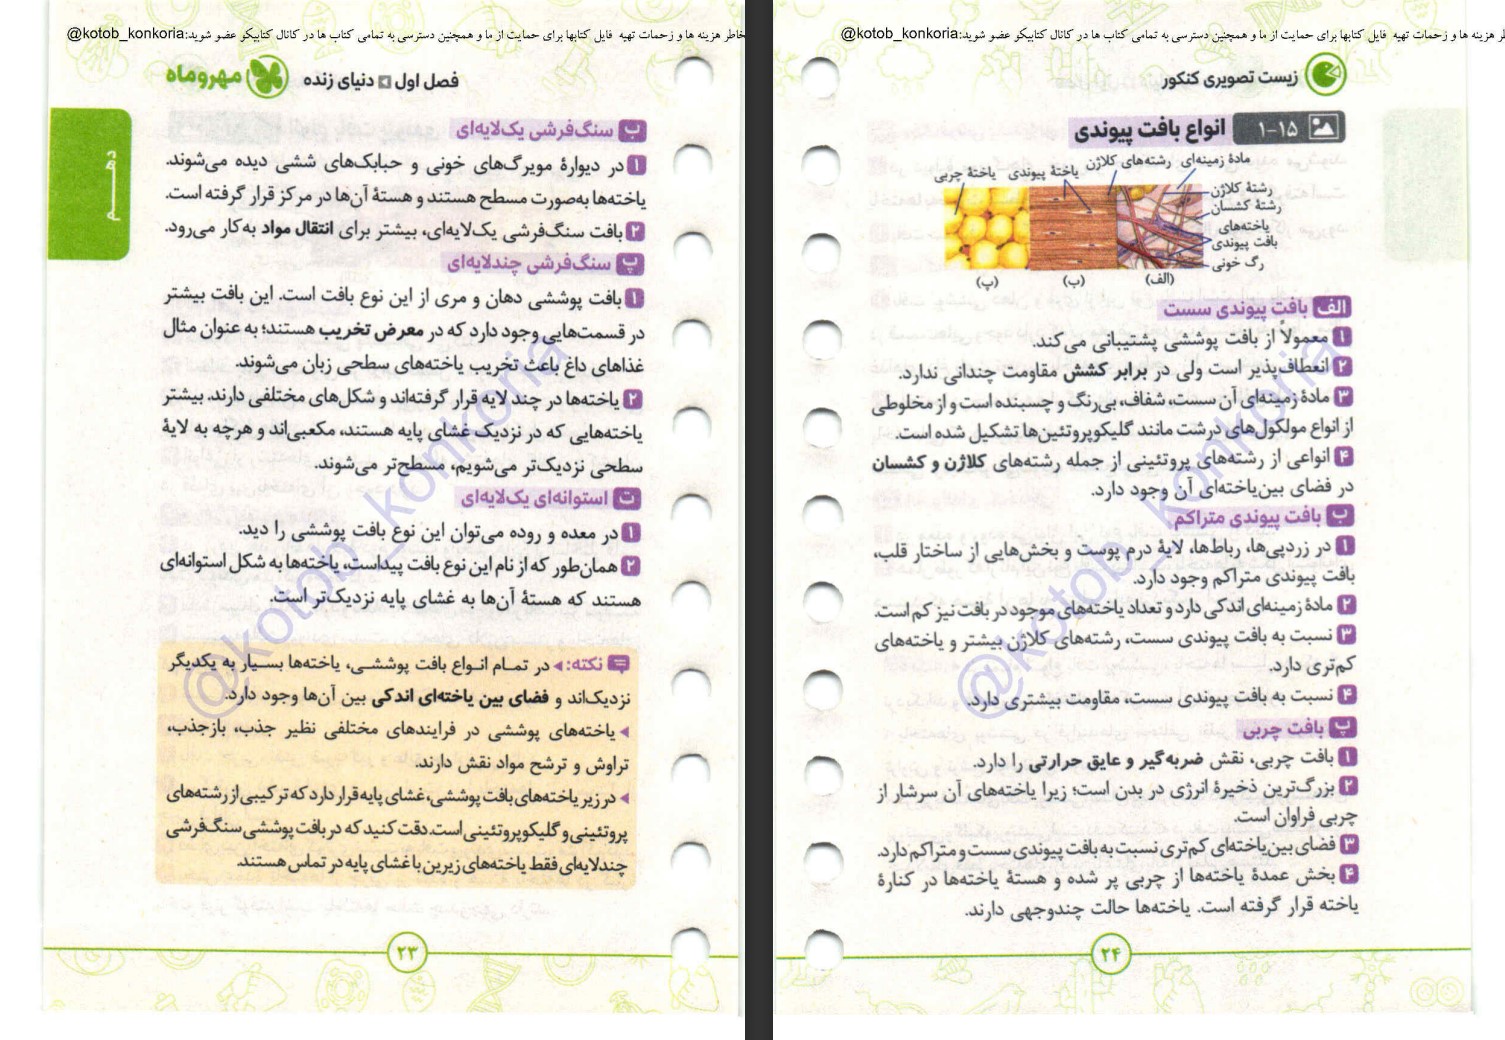 خاطر هزینه ها و زحمات تهیه فایل کتابها برای حمایت از ما و همچنین دسترسی به تمامی کتاب ها در کانال کتابیکو عضو شوید:@kotob_konkoria
فصل اول دنیای زنده مهروماه
دهم
ب سنگ‌فرشی یک‌لایه‌ای
۱ در دیوارهٔ مویرگ‌های خونی و حبابک‌های ششی دیده می‌شوند.
یاخته‌ها به‌صورت مسطح هستند و هستهٔ آن‌ها در مرکز قرار گرفته است.
۲ بافت سنگ‌فرشی یک‌لایه‌ای، بیشتر برای انتقال مواد به‌کار می‌رود.
پ سنگ‌فرشی چندلایه‌ای
۱ بافت پوششی دهان و مری از این نوع بافت است. این بافت بیشتر
در قسمت‌هایی وجود دارد که در معرض تخریب هستند؛ به عنوان مثال
غذاهای داغ باعث تخریب یاخته‌های سطحی زبان می‌شوند.
۲ یاخته‌ها در چند لایه قرار گرفته‌اند و شکل‌های مختلفی دارند. بیشتر
یاخته‌هایی که در نزدیک غشای پایه هستند، مکعبی‌اند و هرچه به لایهٔ
سطحی نزدیک‌تر می‌شویم، مسطح‌تر می‌شوند.
ت استوانه‌ای یک‌لایه‌ای
۱ در معده و روده می‌توان این نوع بافت پوششی را دید.
۲ همان‌طور که از نام این نوع بافت پیداست، یاخته‌ها به شکل استوانه‌ای
هستند که هستهٔ آن‌ها به غشای پایه نزدیک‌تر است.
نکته: ◂ در تمـام انـواع بافت پوششـی، یاخته‌ها بسـیار به یکدیگر
نزدیک‌اند و فضای بین یاخته‌ای اندکی بین آن‌ها وجود دارد.
◂ یاخته‌های پوششی در فرایندهای مختلفی نظیر جذب، بازجذب،
تراوش و ترشح مواد نقش دارند.
◂ در زیر یاخته‌های بافت پوششی، غشای پایه قرار دارد که ترکیبی از رشته‌های
پروتئینی و گلیکوپروتئینی است. دقت کنید که در بافت پوششی سنگ‌فرشی
چندلایه‌ای فقط یاخته‌های زیرین با غشای پایه در تماس هستند.
۲۳
@kotob_konkoria
طر هزینه ها و زحمات تهیه فایل کتابها برای حمایت از ما و همچنین دسترسی به تمامی کتاب ها در کانال کتابیکو عضو شوید:@kotob_konkoria
زیست تصویری کنکور
۱-۱۵ انواع بافت پیوندی
مادهٔ زمینه‌ای رشته‌های کلاژن یاختهٔ پیوندی یاختهٔ چربی
رشتهٔ کلاژن
رشتهٔ کشسان
یاخته‌های
بافت پیوندی
رگ خونی
(الف) (ب) (پ)
الف بافت پیوندی سست
۱ معمولاً از بافت پوششی پشتیبانی می‌کند.
۲ انعطاف‌پذیر است ولی در برابر کشش مقاومت چندانی ندارد.
۳ مادهٔ زمینه‌ای آن سست، شفاف، بی‌رنگ و چسبنده است و از مخلوطی
از انواع مولکول‌های درشت مانند گلیکوپروتئین‌ها تشکیل شده است.
۴ انواعی از رشته‌های پروتئینی از جمله رشته‌های کلاژن و کشسان
در فضای بین‌یاخته‌ای آن وجود دارد.
ب بافت پیوندی متراکم
۱ در زردپی‌ها، رباط‌ها، لایهٔ درم پوست و بخش‌هایی از ساختار قلب،
بافت پیوندی متراکم وجود دارد.
۲ مادهٔ زمینه‌ای اندکی دارد و تعداد یاخته‌های موجود در بافت نیز کم است.
۳ نسبت به بافت پیوندی سست، رشته‌های کلاژن بیشتر و یاخته‌های
کم‌تری دارد.
۴ نسبت به بافت پیوندی سست، مقاومت بیشتری دارد.
پ بافت چربی
۱ بافت چربی، نقش ضربه‌گیر و عایق حرارتی را دارد.
۲ بزرگ‌ترین ذخیرهٔ انرژی در بدن است؛ زیرا یاخته‌های آن سرشار از
چربی فراوان است.
۳ فضای بین‌یاخته‌ای کم‌تری نسبت به بافت پیوندی سست و متراکم دارد.
۴ بخش عمدهٔ یاخته‌ها از چربی پر شده و هستهٔ یاخته‌ها در کنارهٔ
یاخته قرار گرفته است. یاخته‌ها حالت چندوجهی دارند.
۲۴
@kotob_konkoria